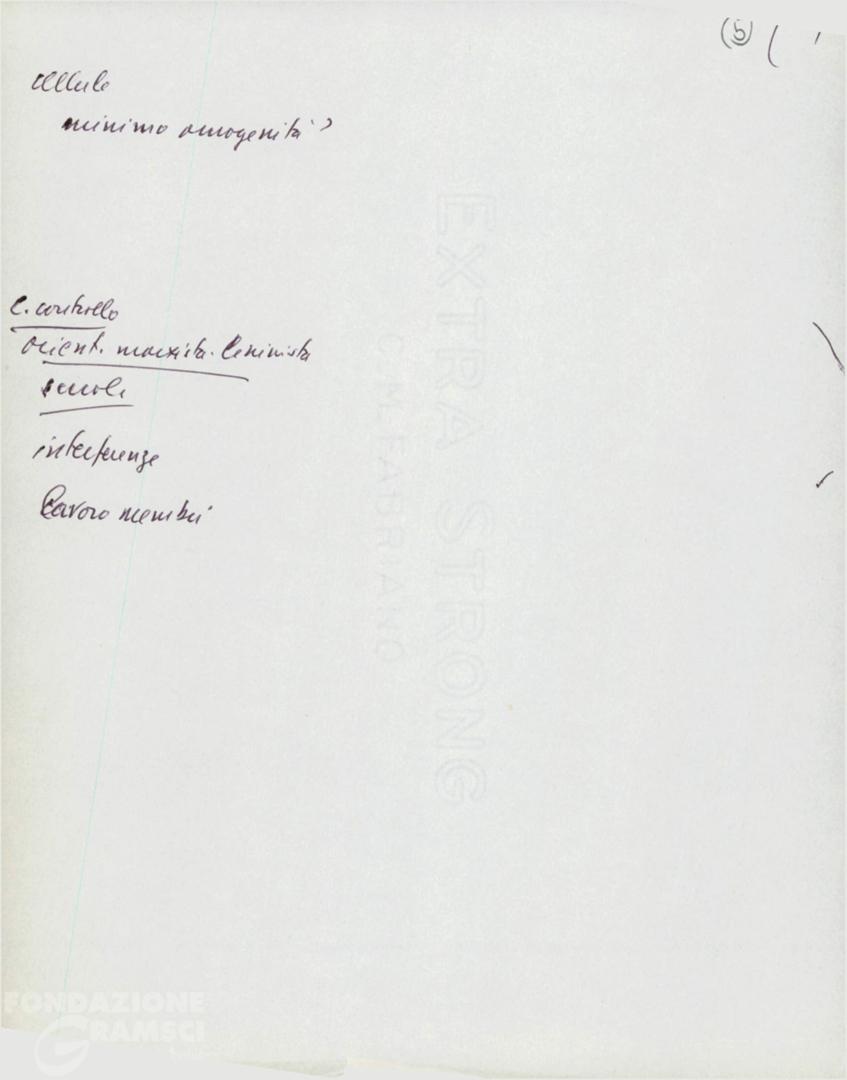 (5) (
cellule
minimo omogenità?
C. controllo
orient. marxista-leninista
scuole
interferenze
lavoro membri
EXTRA STRONG
C. M. FABRIANO
FONDAZIONE
GRAMSCI